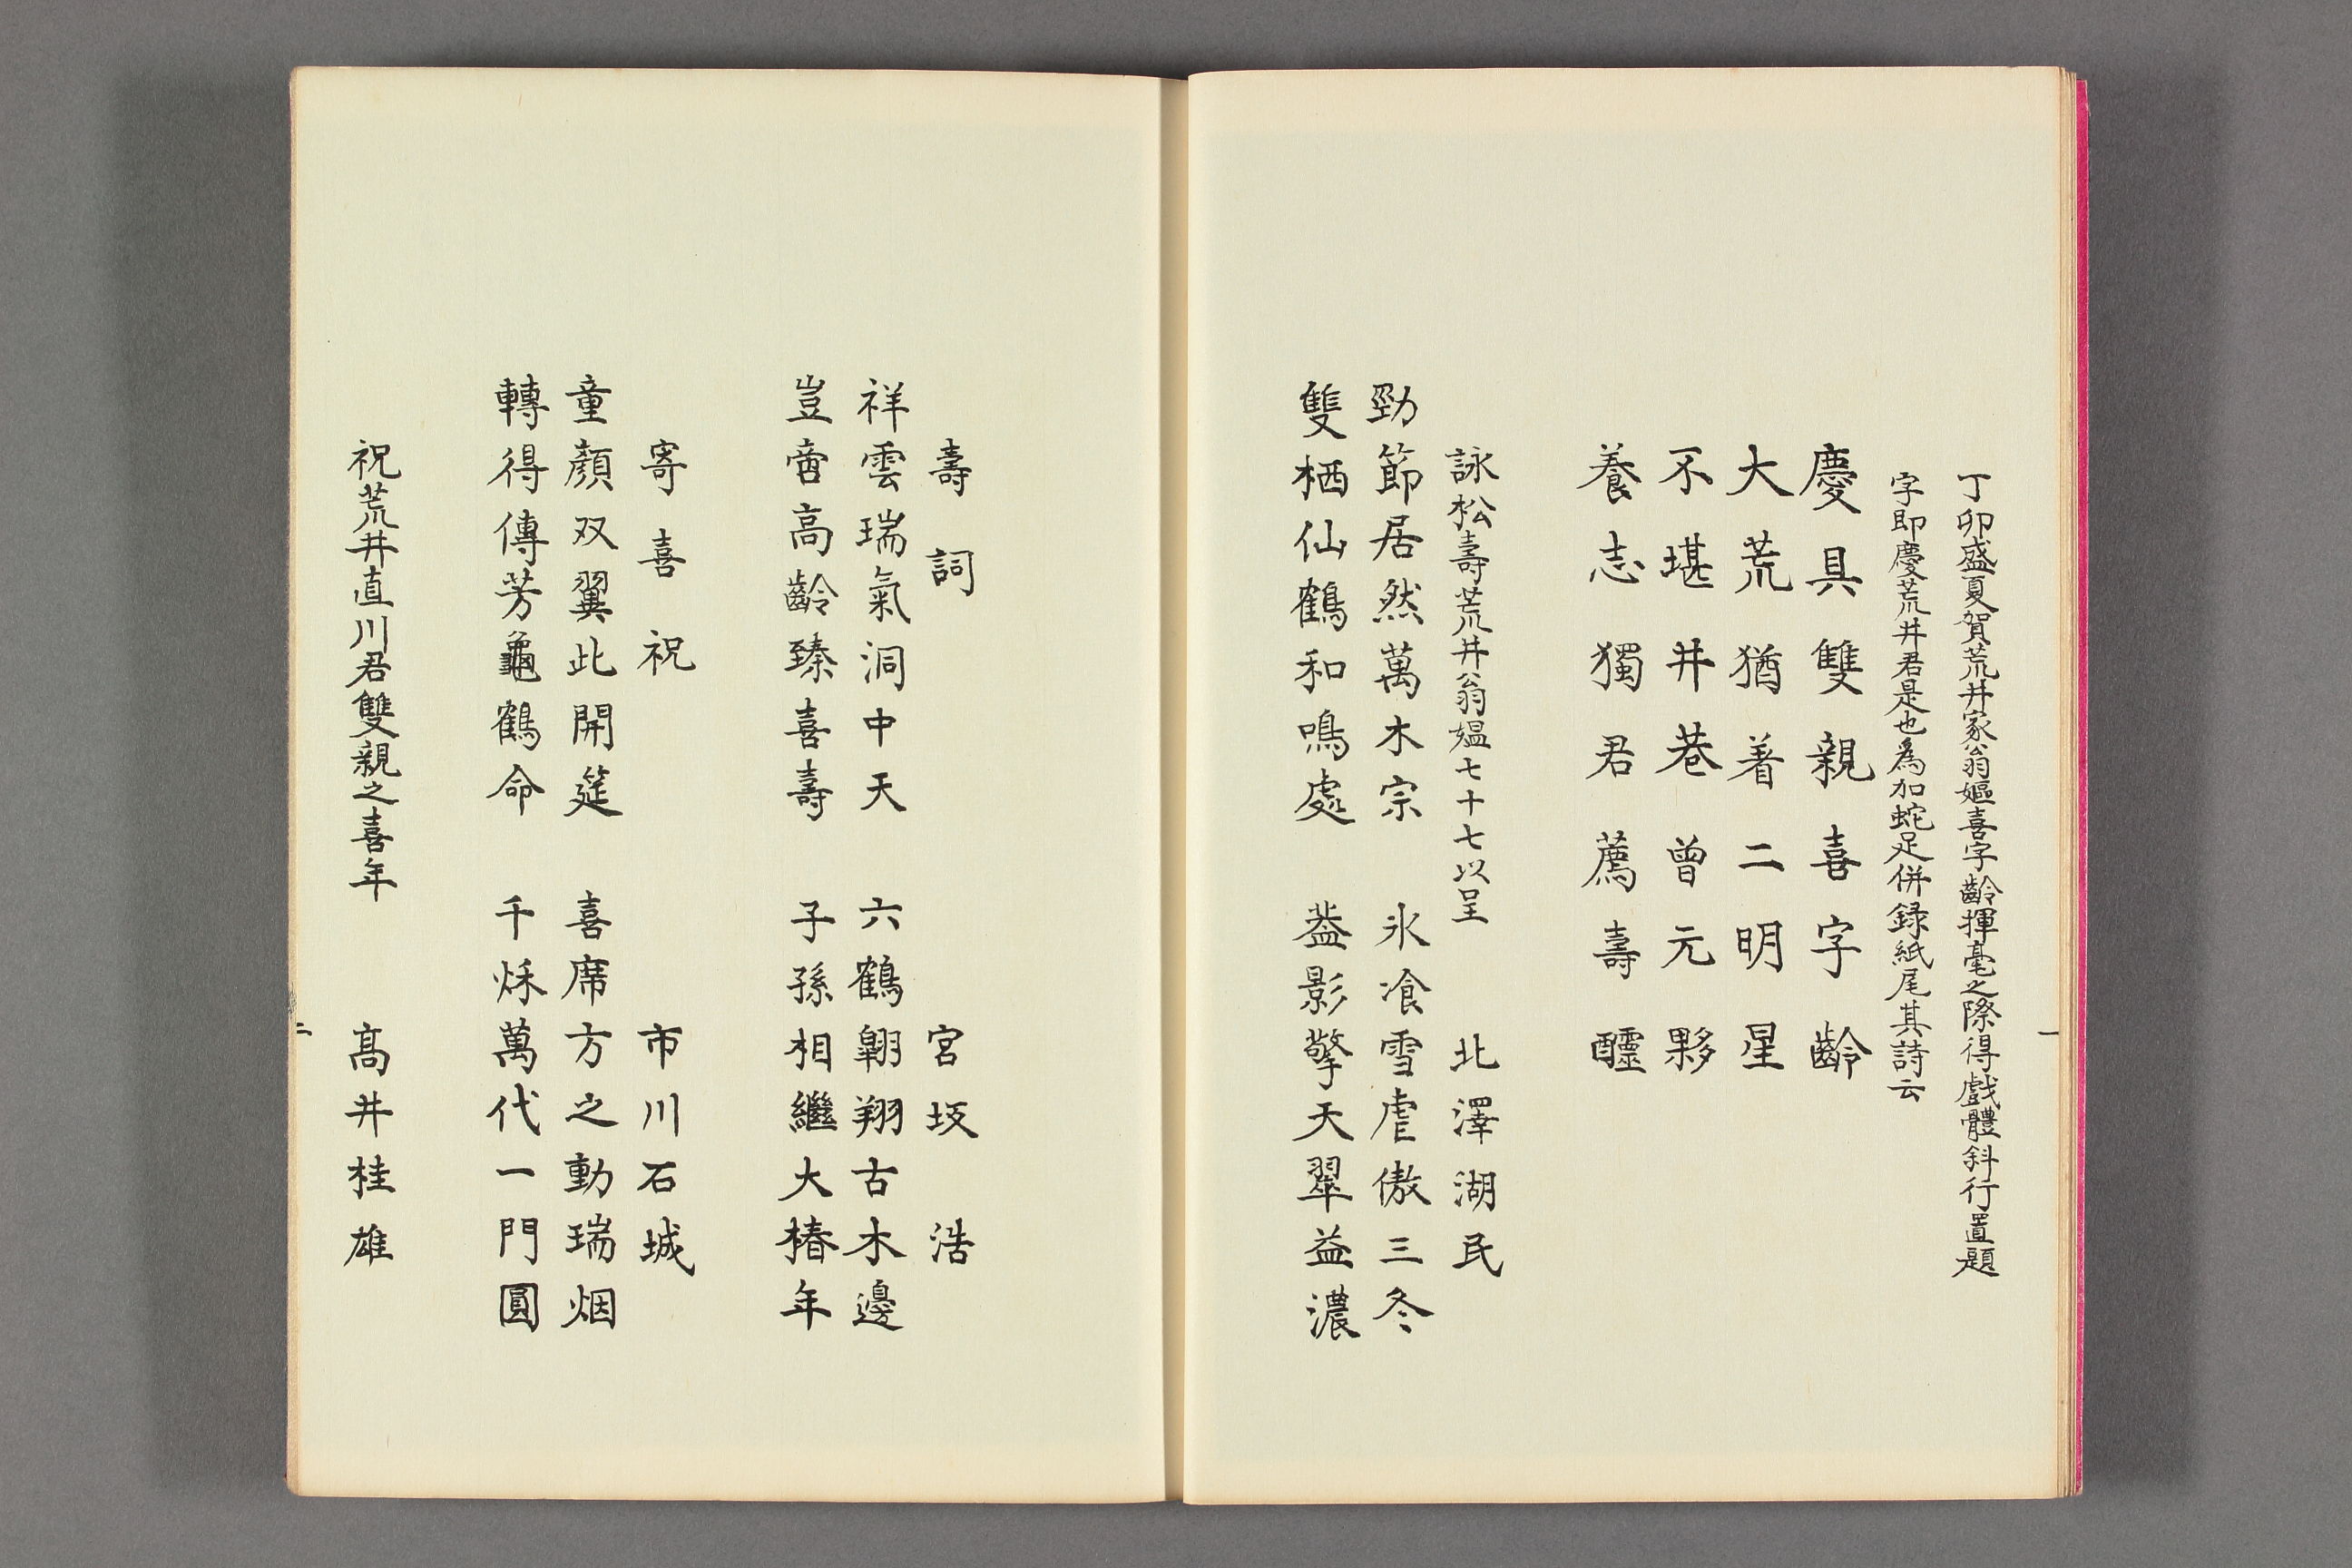 一
丁卯盛夏賀荒井家翁嫗喜字齡揮毫之際得戲體斜行置題
字即慶荒井君是也為加蛇足併録紙尾其詩云
慶具雙親喜字齡
大荒猶着二明星
不堪井巷曾元夥
養志獨君薦壽醽
詠松壽荒井翁媼七十七以呈 北澤湖民
勁節居然萬木宗 氷飡雪虐傲三冬
雙栖仙鶴和鳴處 葢影擎天翠益濃
壽詞 宮坂浩
祥雲瑞氣洞中天 六鶴翺翔古木邊
豈啻高齡臻喜壽 子孫相繼大椿年
寄喜祝 市川石城
童顏双翼此開筵 喜席方之動瑞烟
轉得傳芳龜鶴命 千秌萬代一門圓
祝荒井直川君雙親之喜年 髙井桂雄
二